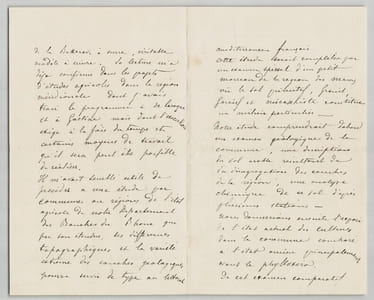 de la science : mon véritable
modèle à suivre. Sa lettre m'a
déjà confirmé dans les projets
d'études agricoles dans la région
méridionale dont j'avais
tracé le programme à
et à mais dont l'exécution
exige à la fois du temps et
certains moyens de travail
qu'il sera peut être possible
de réaliser.
Il m'avait semblé utile de
procéder à une étude par
commune ou régions de l'état
agricole de notre département
des Bouches du Rhône qui
par son étendue, les différences
topographiques et la variété
extrême des couches géologiques
pourra servir de type au littoral
méditerranéen français
Cette étude serait complétée par
un examen spécial d'un petit
morceau de la région des maures
où le sol primitif,
et micaschiste constitue
un milieu particulier
Notre étude comprendrait d'abord
un examen géologique de la
commune, une description
du sol arable résultant de
la désagrégation des couches
de la région, une analyse
chimique de ce sol d'après
plusieurs stations —
Nous donnerions ensuite l'exposé
de l'état actuel des cultures
dans la commune comparé
à l'état ancien (principalement
avant le phylloxera)
De cet examen comparatif